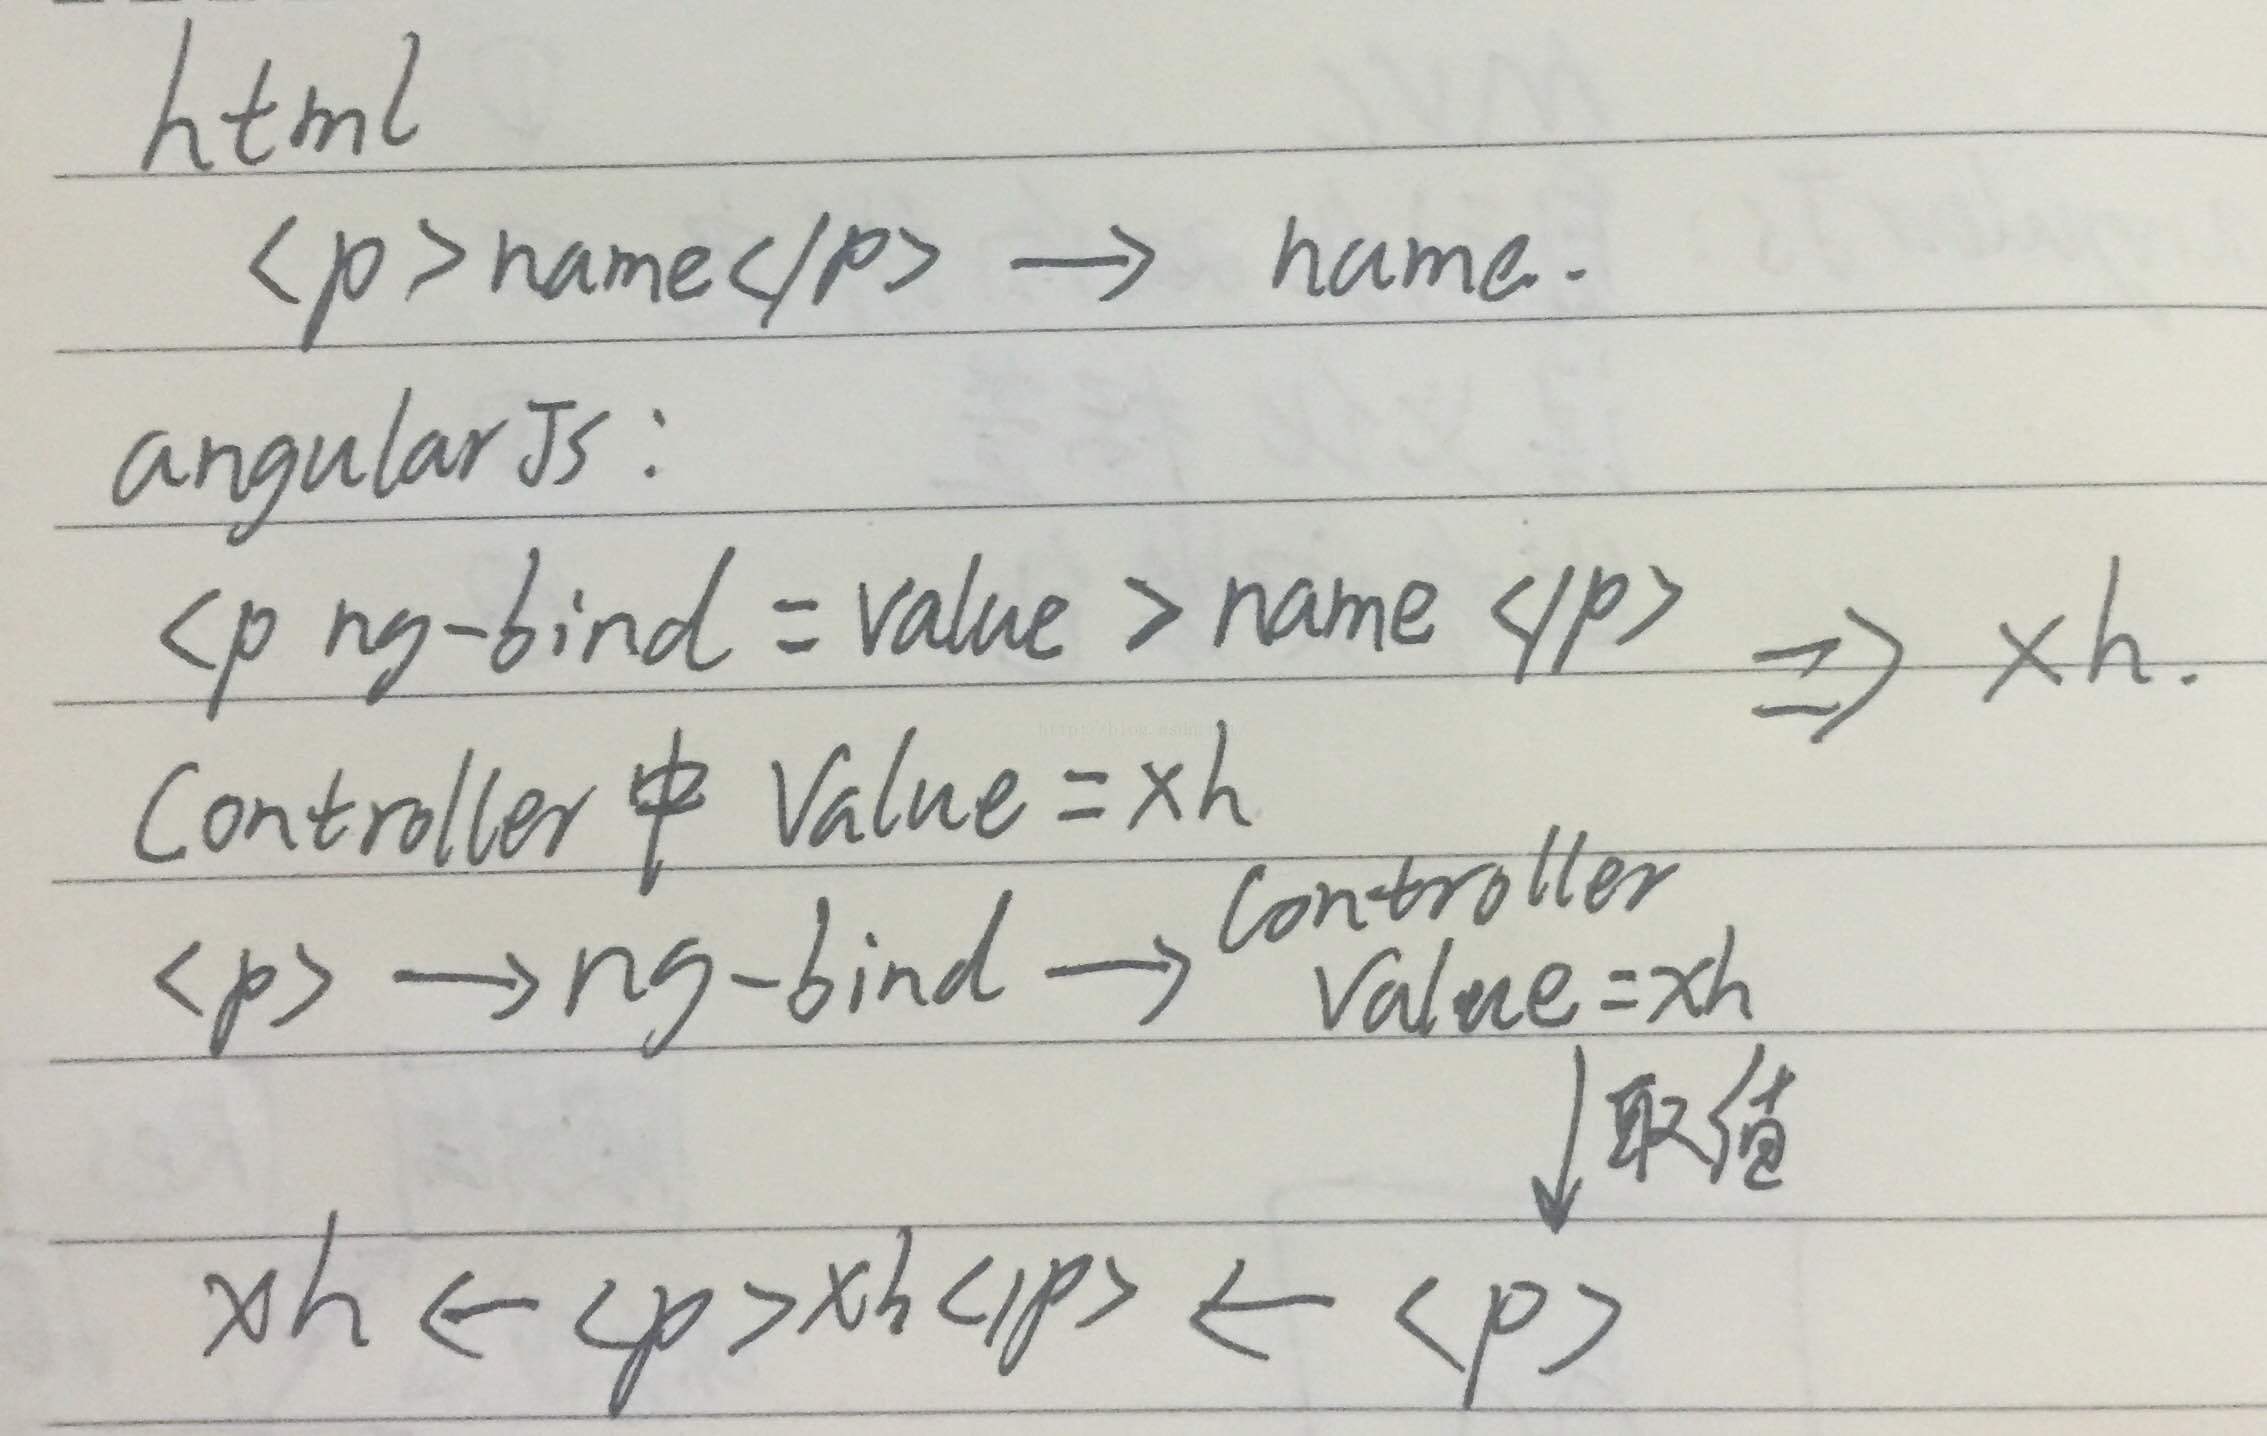 html
<p>name</p> → name.
angularJs:
<p ng-bind = value > name </p> ⇒ xh.
Controller中 Value = xh
<p> → ng-bind → Controller
Value = xh
↓ 取值
xh ← <p>xh</p> ← <p>